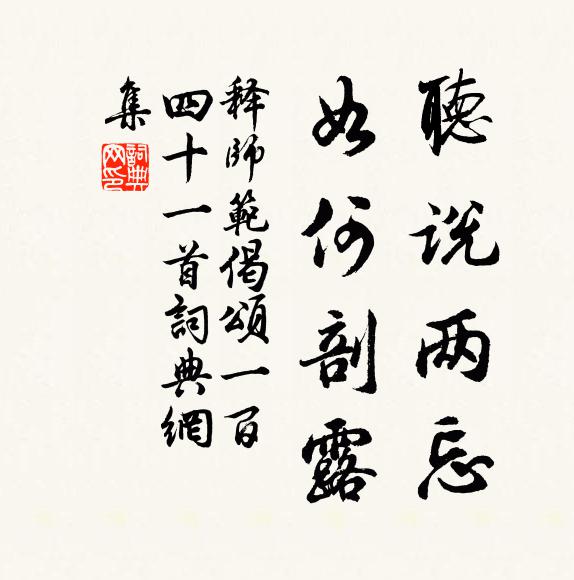 聽说两忘
如何剖露
释師範偈頌一百
四十一首詞典網
集
詞典网印